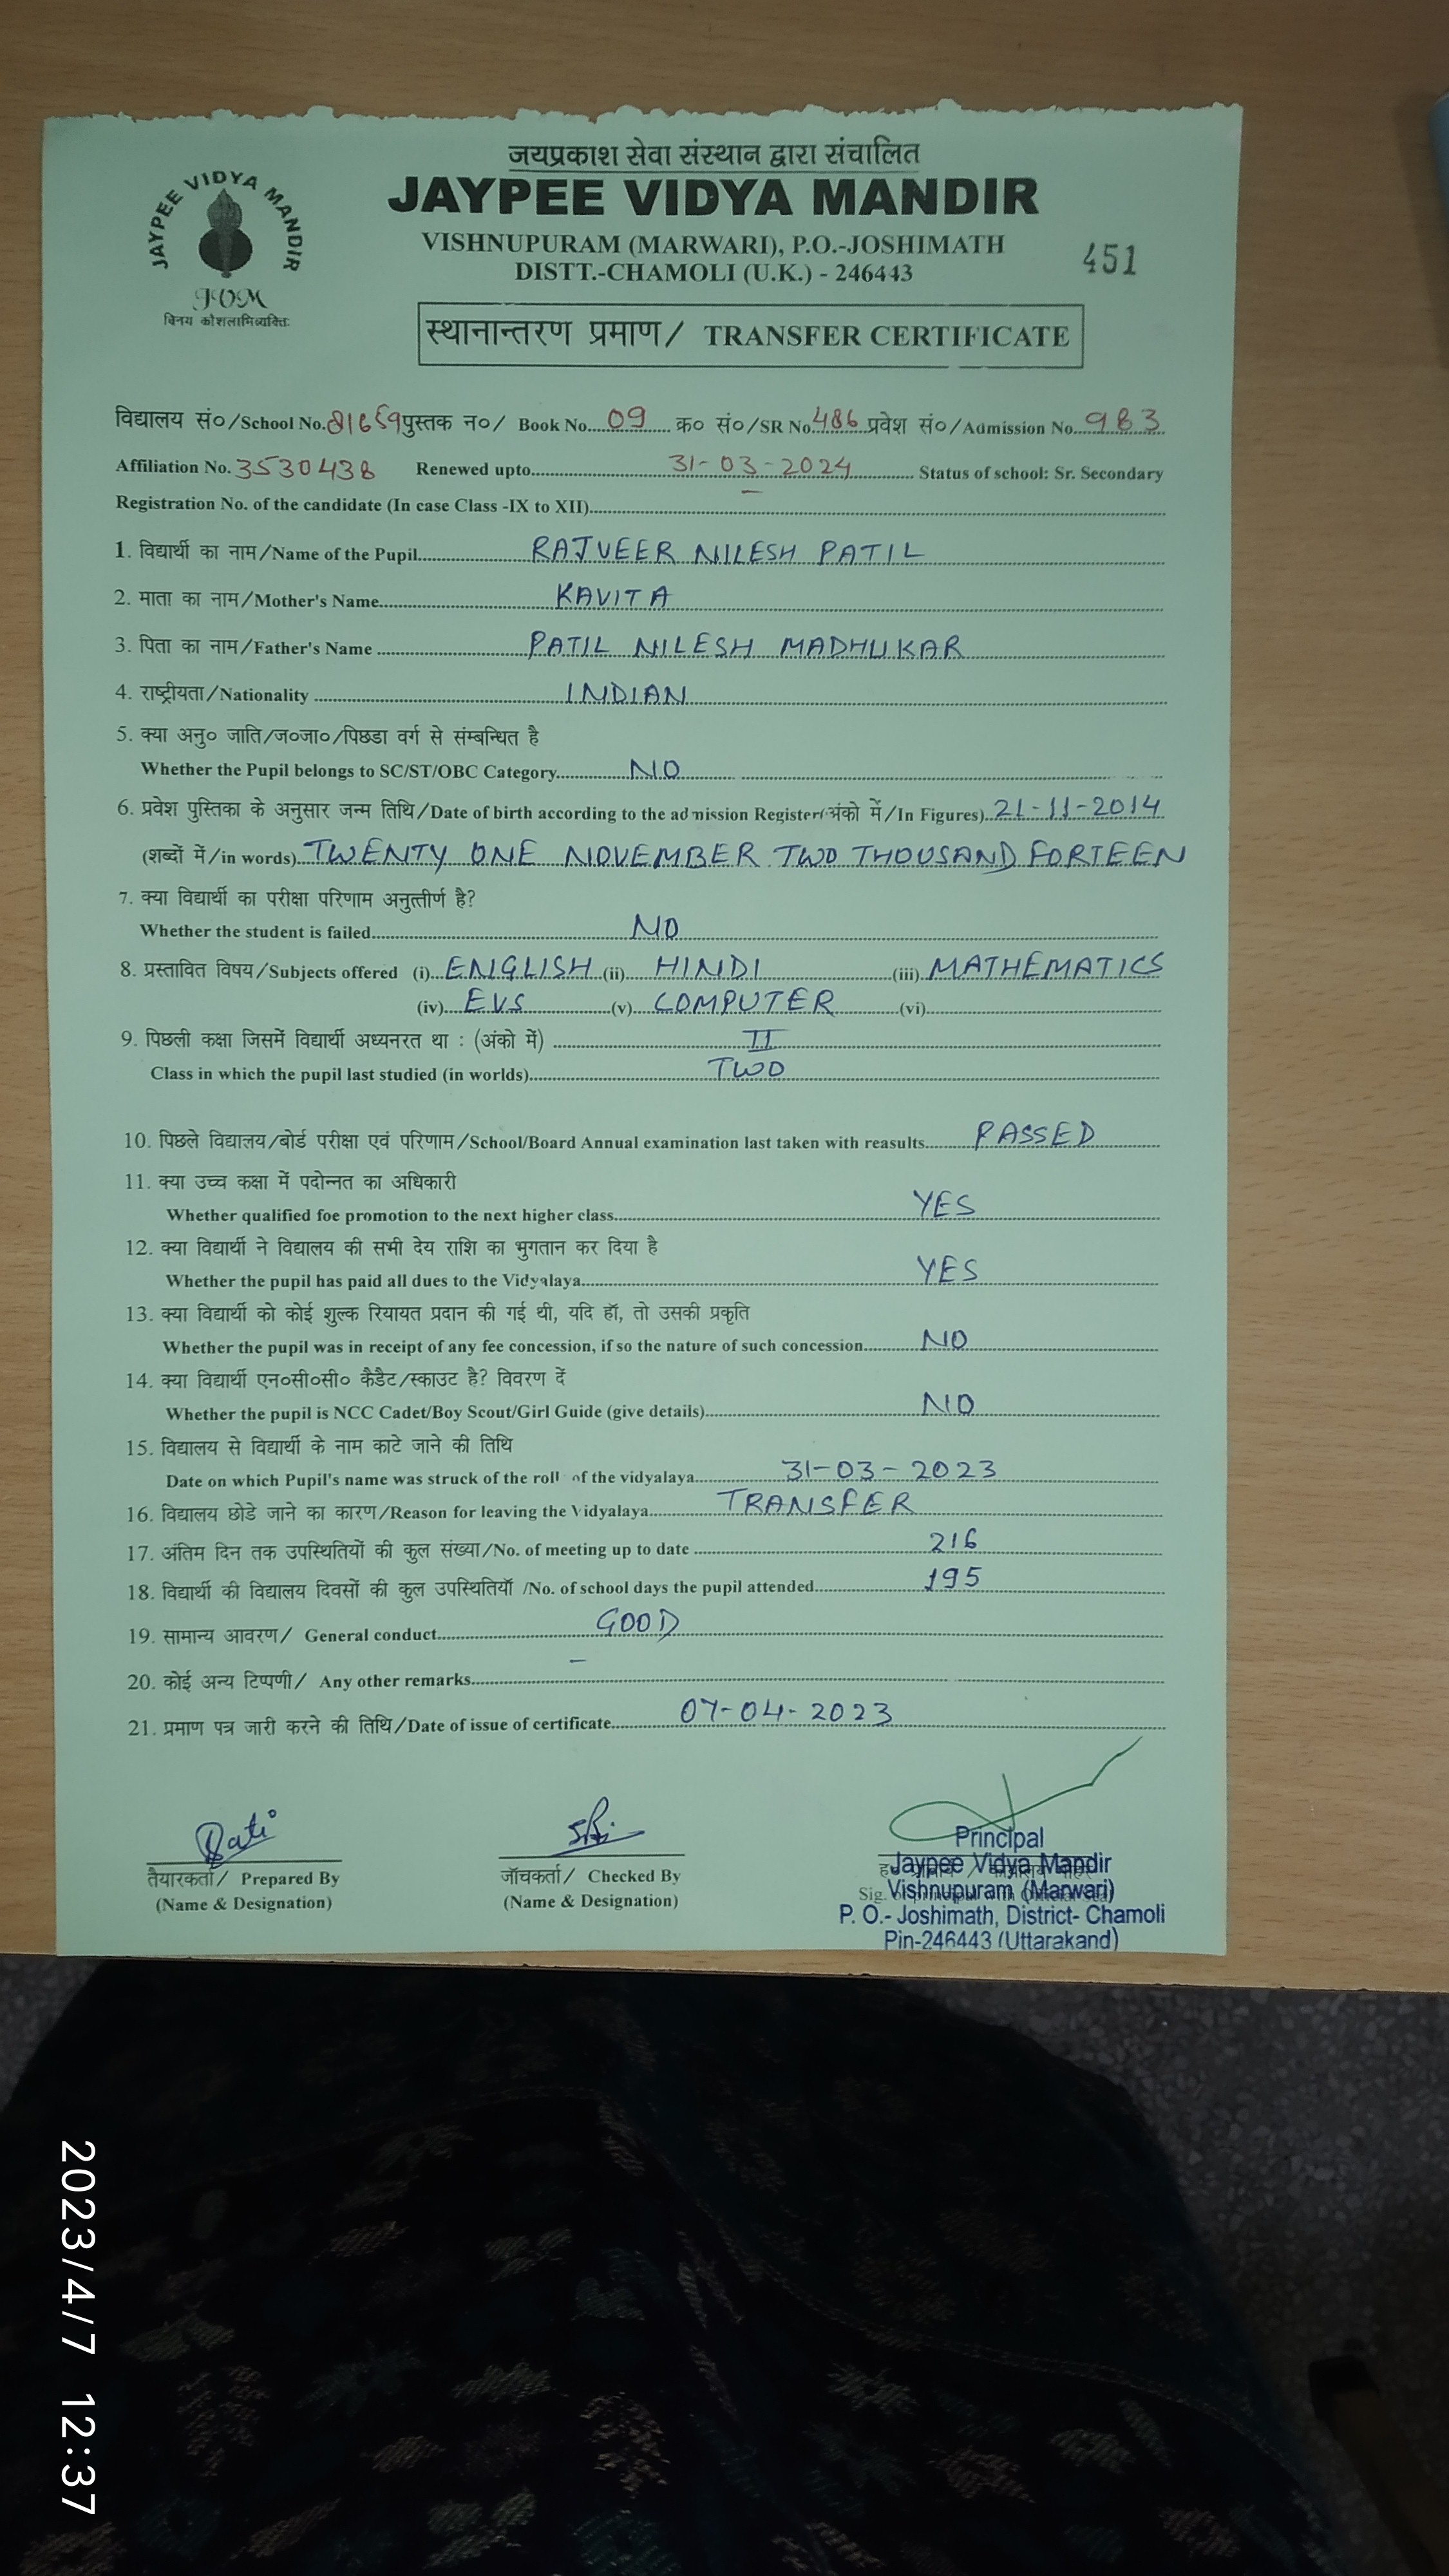 जयप्रकाश सेवा संस्थान द्वारा संचालित
JAYPEE VIDYA MANDIR
JAYPEE VIDYA MANDIR
VISHNUPURAM (MARWARI), P.O.-JOSHIMATH
451
DISTT.-CHAMOLI (U.K.) - 246443
विनय कौशलाभिव्यक्तिः
स्थानान्तरण प्रमाण/ TRANSFER CERTIFICATE
विद्यालय सं०/School No. 81659 पुस्तक न०/ Book No.....09.... क्र० सं०/SR No. 486 प्रवेश सं०/Admission No...983
Affiliation No. 3530438 Renewed upto..........31-03-2024.......... Status of school: Sr. Secondary
Registration No. of the candidate (In case Class -IX to XII)..........
1. विद्यार्थी का नाम/Name of the Pupil..........RAJVEER NILESH PATIL
2. माता का नाम/Mother's Name..........KAVITA
3. पिता का नाम/Father's Name ..........PATIL NILESH MADHUKAR
4. राष्ट्रीयता/Nationality ..........INDIAN
5. क्या अनु० जाति/ज०जा०/पिछडा वर्ग से संम्बन्धित है
Whether the Pupil belongs to SC/ST/OBC Category..........NO
6. प्रवेश पुस्तिका के अनुसार जन्म तिथि/Date of birth according to the admission Register(अंको में/In Figures)..21-11-2014
(शब्दों में/in words)..TWENTY ONE NOVEMBER TWO THOUSAND FORTEEN
7. क्या विद्यार्थी का परीक्षा परिणाम अनुत्तीर्ण है?
Whether the student is failed..........NO
8. प्रस्तावित विषय/Subjects offered (i)...ENGLISH (ii)... HINDI (iii)..MATHEMATICS
(iv)....EVS (v)....COMPUTER (vi)..........
9. पिछली कक्षा जिसमें विद्यार्थी अध्यनरत था : (अंको में) ..........II
Class in which the pupil last studied (in worlds)..........TWO
10. पिछले विद्यालय/बोर्ड परीक्षा एवं परिणाम/School/Board Annual examination last taken with reasults..........PASSED
11. क्या उच्च कक्षा में पदोन्नत का अधिकारी
Whether qualified foe promotion to the next higher class..........YES
12. क्या विद्यार्थी ने विद्यालय की सभी देय राशि का भुगतान कर दिया है
Whether the pupil has paid all dues to the Vidyalaya..........YES
13. क्या विद्यार्थी को कोई शुल्क रियायत प्रदान की गई थी, यदि हॉ, तो उसकी प्रकृति
Whether the pupil was in receipt of any fee concession, if so the nature of such concession..........NO
14. क्या विद्यार्थी एन०सी०सी० कैडैट/स्काउट है? विवरण दें
Whether the pupil is NCC Cadet/Boy Scout/Girl Guide (give details)..........NO
15. विद्यालय से विद्यार्थी के नाम काटे जाने की तिथि
Date on which Pupil's name was struck of the roll of the vidyalaya..........31-03-2023
16. विद्यालय छोडे जाने का कारण/Reason for leaving the Vidyalaya..........TRANSFER
17. अंतिम दिन तक उपस्थितियों की कुल संख्या/No. of meeting up to date ..........216
18. विद्यार्थी की विद्यालय दिवसों की कुल उपस्थितियॉं /No. of school days the pupil attended..........195
19. सामान्य आवरण/ General conduct..........GOOD
20. कोई अन्य टिप्पणी/ Any other remarks.......... -
21. प्रमाण पत्र जारी करने की तिथि/Date of issue of certificate..........07-04-2023
तैयारकर्ता/ Prepared By
(Name & Designation)
जॉचकर्ता/ Checked By
(Name & Designation)
Principal
Jaypee Vidya Mandir
Vishnupuram (Marwari)
P. O.- Joshimath, District- Chamoli
Pin-246443 (Uttarakand)
2023/4/7 12:37